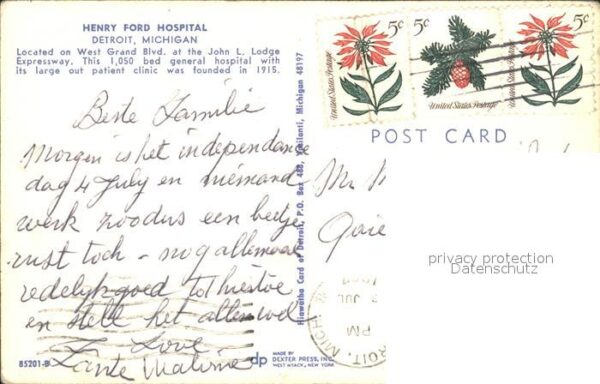 HENRY FORD HOSPITAL
DETROIT, MICHIGAN
Located on West Grand Blvd. at the John L. Lodge
Expressway. This 1,050 bed general hospital with
its large out patient clinic was founded in 1915.
Beste Familie
Morgen is het independance
dag 4 July en niemand
werk zoodus een beetje
rust toch - nog allemaal
redelijk goed tot hiertoe
en stelt het allen wel
Love
Tante
85201-B
dp
MADE BY
DEXTER PRESS, INC.
WEST NYACK, NEW YORK
Hiawatha Card of Detroit, P.O. Box 488, Ypsilanti, Michigan 48197
5c
United States Postage
5c
United States Postage
5c
POST CARD
Mr
privacy protection
Datenschutz
JUL
PM
DETROIT, MICH.